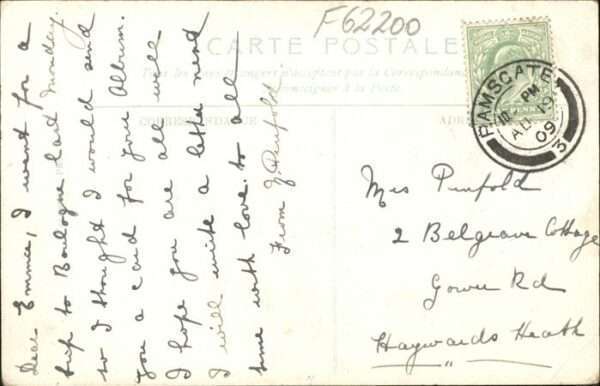 F62200
CARTE POSTALE
Tous les pays étrangers n'acceptent pas la Correspondance
au
à la Poste.
CORRESPONDANCE
Dear Emmie, I went for a
trip to Boulogne last Monday.
so I thought I would send
you a card for your Album.
I hope you are all well
I will write a letter next
time with love to all
From J. Penfold
RAMSGATE
10 PM
AU 19
09
3
Mrs Penfold
2 Belgrave Cottage
Gower Rd
Haywards Heath